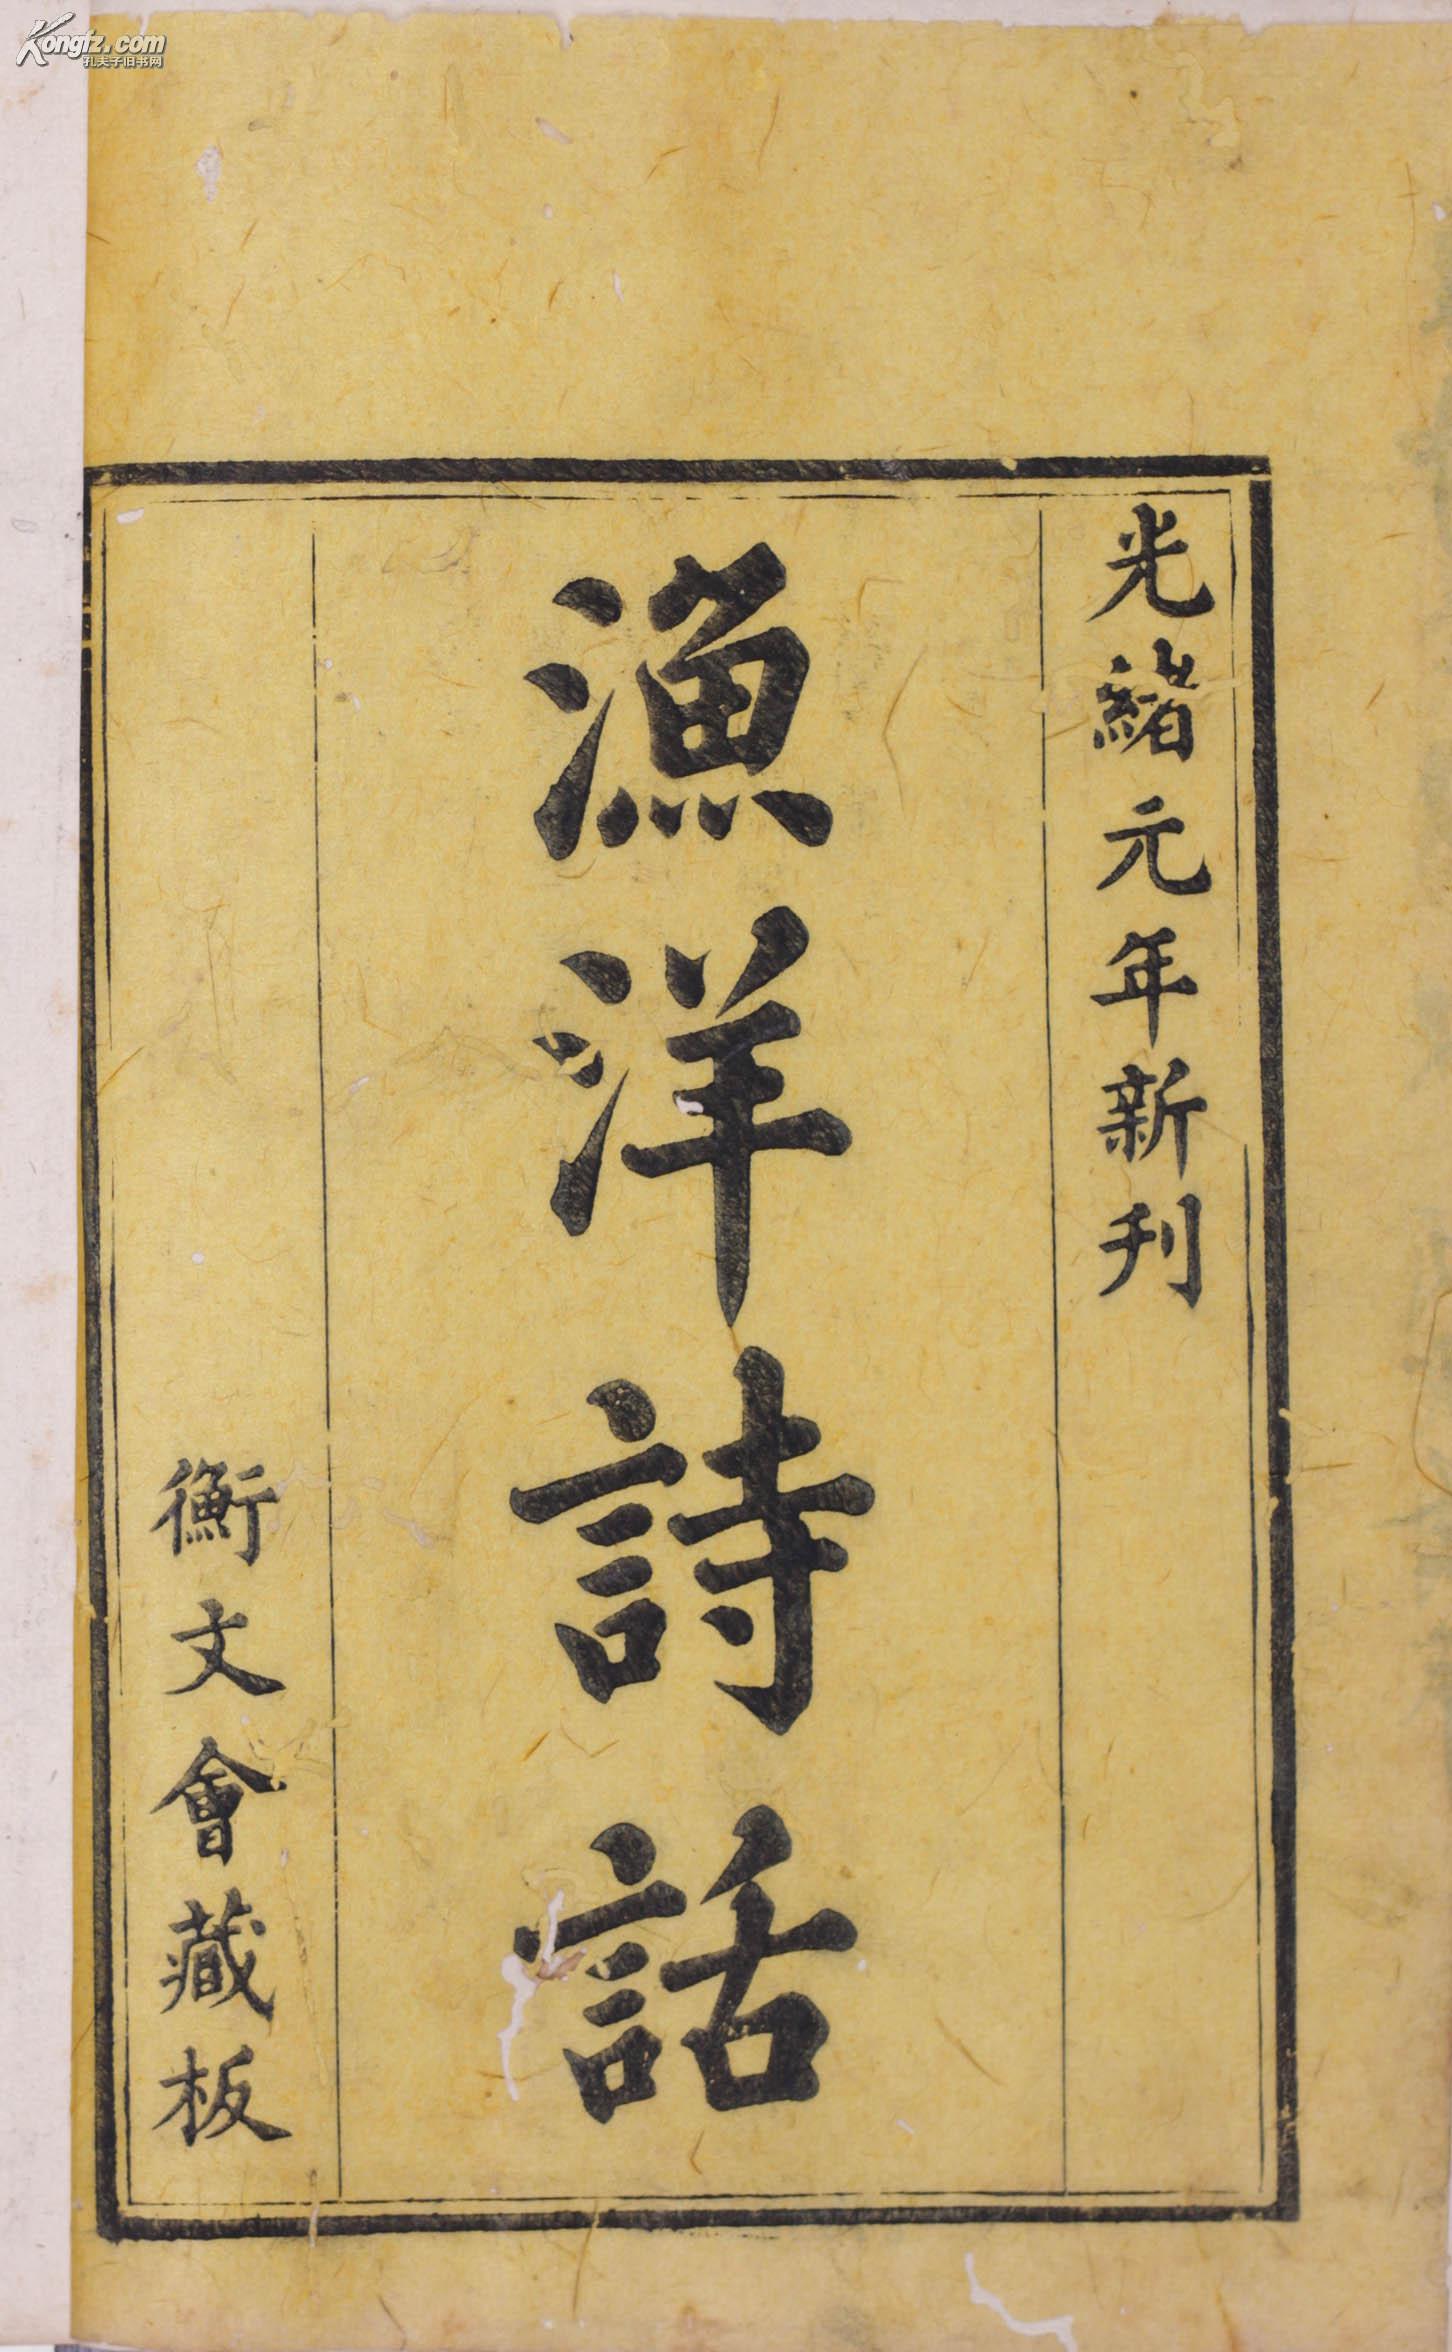 Kongfz.com
孔夫子旧书网
光緒元年新刊
漁洋詩話
衡文會藏板